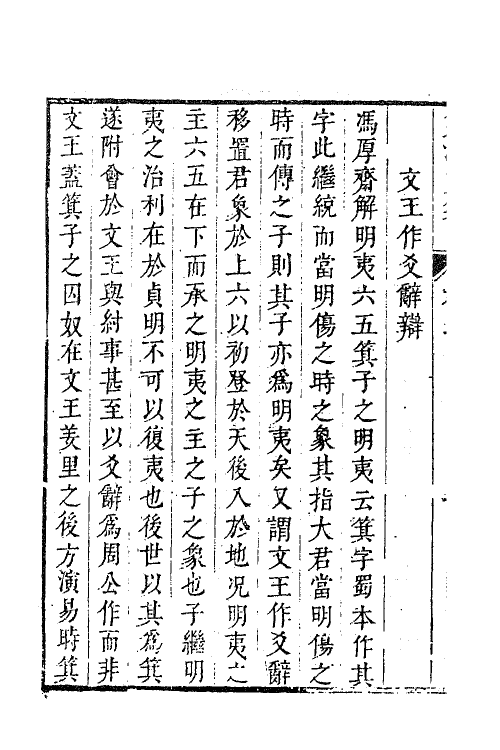 文王作爻辭辯
馮厚齋解明夷六五箕子之明夷云箕字蜀本作其
字此繼統而當明傷之時之象其指大君當明傷之
時而傳之子則其子亦爲明夷矣又謂文王作爻辭
移置君象於上六以初登於天後入於地况明夷之
主六五在下而承之明夷之主之子之象也子繼明
夷之治利在於貞明不可以復夷也後世以其爲箕
遂附會於文王與紂事甚至以爻辭爲周公作而非
文王蓋箕子之囚奴在文王羑里之後方演易時箕